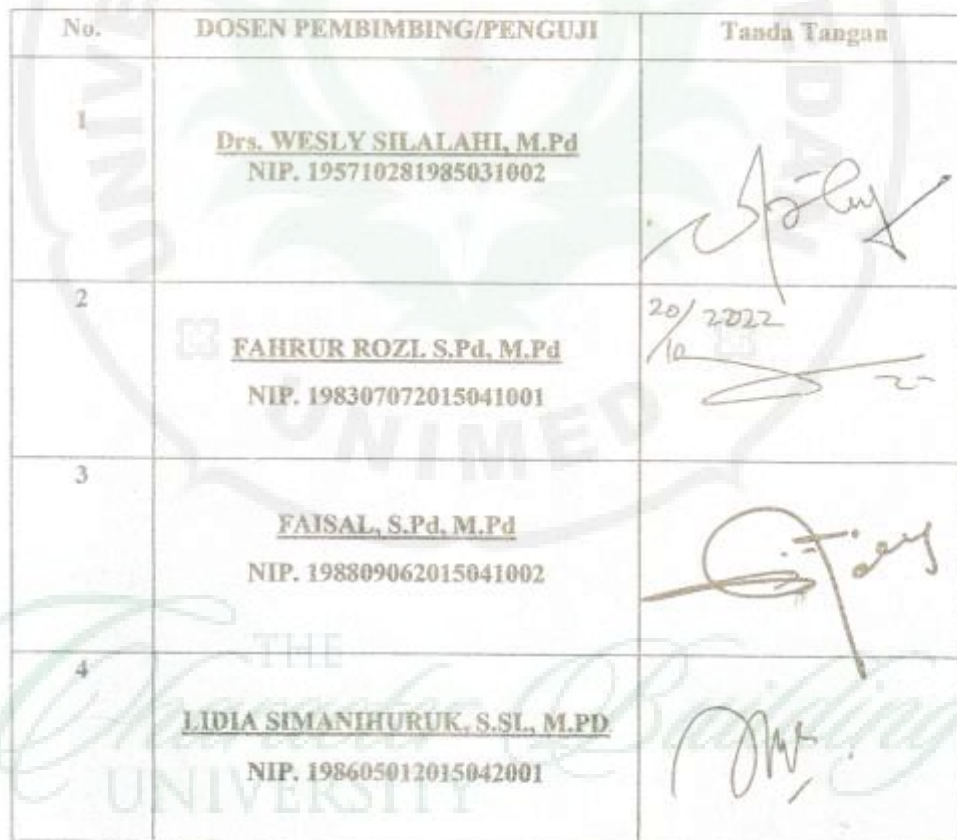 No. DOSEN PEMBIMBING/PENGUJI Tanda Tangan
1
Drs. WESLY SILALAHI, M.Pd
NIP. 195710281985031002
2
20/10 2022
FAHRUR ROZI. S.Pd, M.Pd
NIP. 198307072015041001
3
FAISAL, S.Pd, M.Pd
NIP. 198809062015041002
4
LIDIA SIMANIHURUK, S.SI., M.PD
NIP. 198605012015042001
UNIMED
THE
Character Building
UNIVERSITY